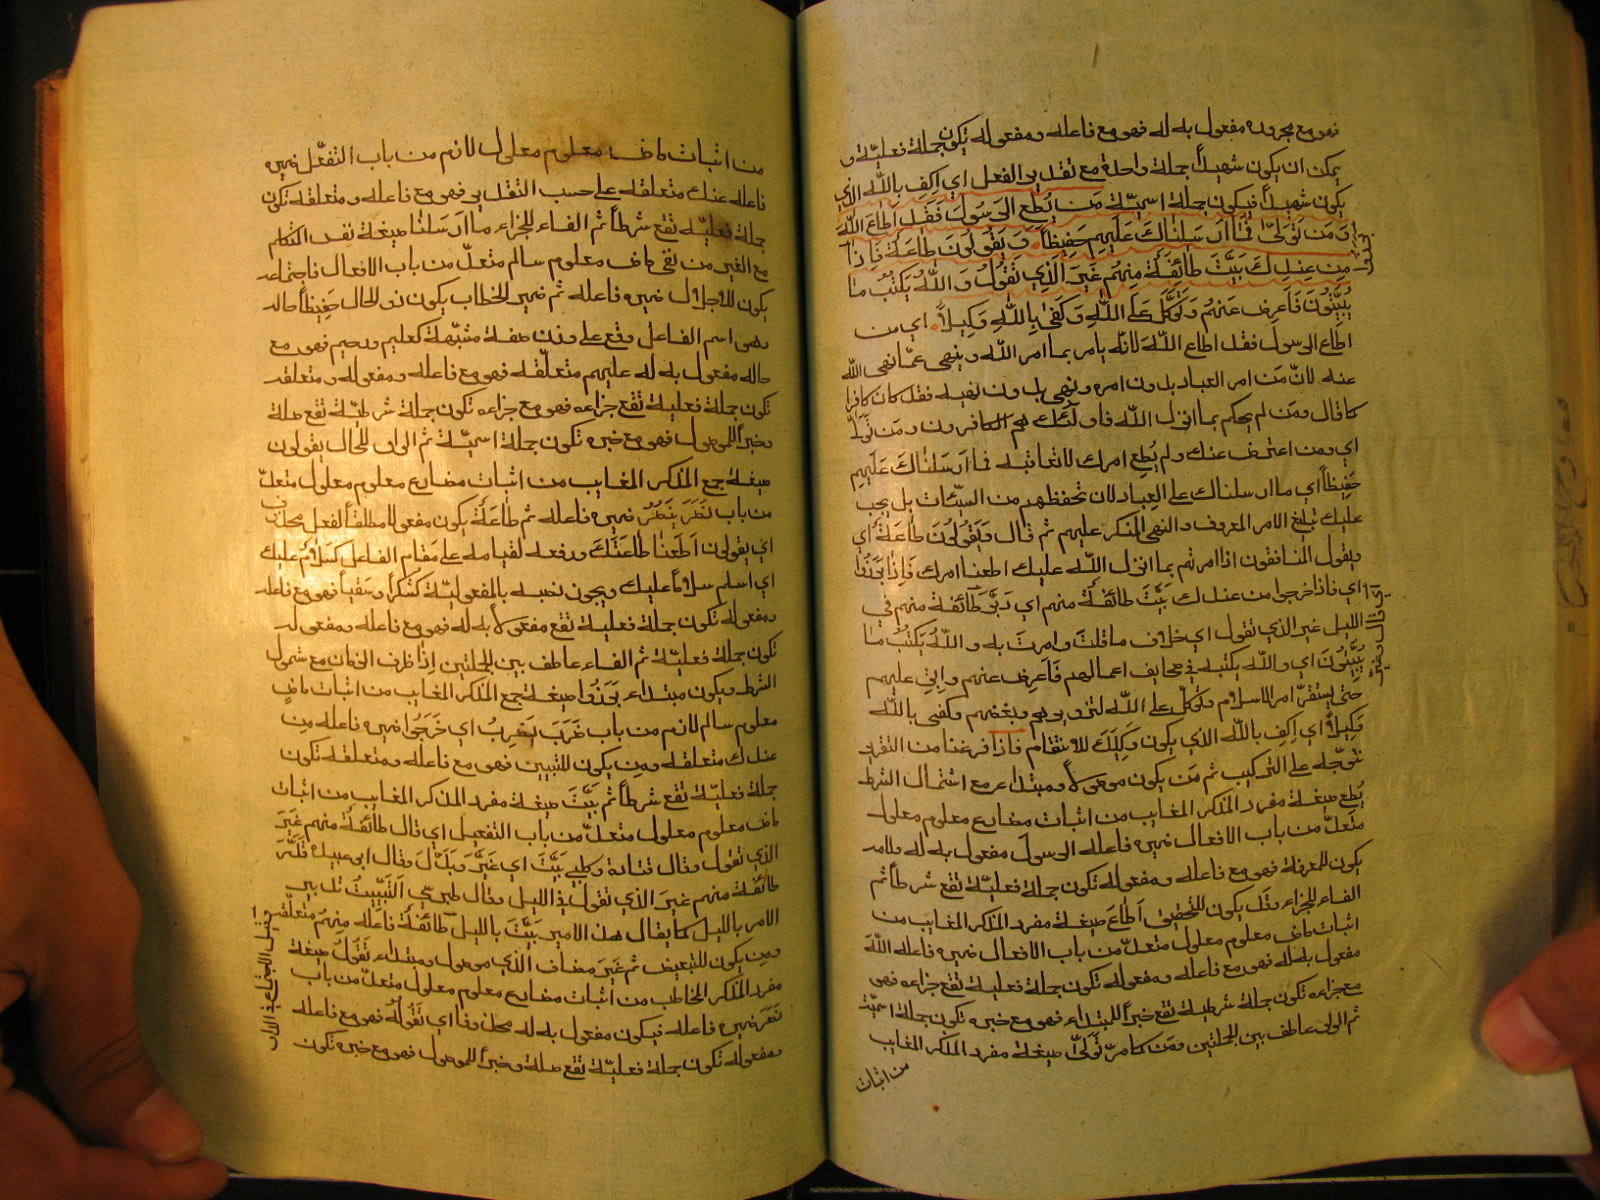 فهو مع مجروره مفعول به له فهو مع فاعله ومفعوله يكون جملة فعليّة و
يمكن ان يكون شهيدًا جملة واحدة مع تقديم الفعل اي اِكفِ بالله الذي
يكون شهيدًا فيكون جملة اسميّة مَن يُطِعِ الرَسُولَ فَقَد اَطَاعَ اللّهَ
وَمَن تَوَلّىٰ فَمَا اَرسَلنَاكَ عَلَيهِم حَفِيظًا وَيَقُولُونَ طَاعَة فَاِذَا
مِن عِندِكَ بَيَّتَ طَائِفَة مِنهُم غَيرَ الَّذِي تَقُولُ وَاللّهُ يَكتُبُ مَا
يُبَيِّتُونَ فَاَعرِض عَنهُم وَتَوَكَّل عَلَى اللّهِ وَكَفىٰ بِاللّهِ وَكِيلاً اي من
اطاع الرسول فقد اطاع اللّهَ لانّه يأمر بما امر اللّه وينهى عمّا نهى اللّه
عنه لانّ مَن امر العباد بدون امره ونهى بدون نهيه فقد كان كافرا
كما قال ومَن لم يحكم بما انزل اللّه فاولٓئك هم الكافرون ومَن تَوَلّىٰ
اي ومن اعترض عنك ولم يُطِع امرك لا تعاتبه فَمَا اَرسَلنَاكَ عَلَيهِم
حَفِيظًا اي ما ارسلناك على العِباد لان تحفظهم من السيّئات بل يجب
عليك تبليغ الامر المعروف والنهي المنكر عليهم ثم قال وَيَقُولُونَ طَاعَة اي
ويقول المنافقون اذا امرتهم بما انزل اللّه عليك اطعنا امرك فَاِذَا بَرَزُوا
اي فاذا خرجوا من عندك بَيَّتَ طَائِفَة منهم اي دَبَّرَ طَائفة منهم في
الليل غير الذي تقول اي خلاف ما قلتَ وامرتَ به واللّهُ يَكتُبُ مَا
يُبَيِّتُونَ اي واللّه يكتبه في صحايف اعمالهم فَاَعرِض عنهم وابق عليهم
حتى يستقرّ امر الاسلام وتوكّل على اللّه وبغضهم وكفى باللّه
وَكِيلاً اي اِكفِ باللّه الذي يكون وَكِيلَكَ للانتقام فاذا فرغنا من التقرير
نتوجّه على التركيب ثم مَن يكون موصولاً ومبتداء مع اشتمال الشرط
يُطِع صيغة مفرد المذكر المغايب من اثبات مضارع معلوم معلول
متعدّ من باب الافعال ضميره فاعله الرسولَ مفعول به له ولامه
يكون للمعرفة فهو مع فاعله ومفعوله تكون جملة فعليّة تقع شرطًا ثم
الفاء للجزاء وقد يكون للتحقيق اَطَاعَ صيغة مفرد المذكر المغايب من
اثبات ماض معلوم معلول متعدّ من باب الافعال ضميره فاعله اللّهَ
مفعول به له فهو مع فاعله ومفعوله تكون جملة فعليّة تقع جزاءه فهو
مع جزاءه تكون جملة شرطيّة تقع خبرًا للمبتداء فهو مع خبره تكون جملة اسميّة
ثم الواو عاطف بين الجملتين ومَن كما مرّ تَوَلّىٰ صيغة مفرد المذكر المغايب
من اثبات
من اثبات ماض معلوم معلول لازم من باب التفعّل ضميره
فاعله عنك متعلقه على حسب التقدير فهو مع فاعله ومتعلقه تكون
جملة فعليّة تقع شرطًا ثم الفاء للجزاء ما ارسلنا صيغة نفس المتكلم
مع الغير من نفى ماض معلوم سالم متعدّ من باب الافعال
يكون للاجلال ضميره فاعله ثم ضمير الخطاب يكون ذو الحال حَفِيظًا حاله
وهو اسم الفاعل وقع على وزن صفة مشبّهة كعليم ورحيم فهو مع
حاله مفعول به له عليهم متعلّقه فهو مع فاعله ومفعوله ومتعلقه
تكون جملة فعلية تقع جزاءه فهو مع جزاءه تكون جملة شرطيّة تقع صلة
وخبرًا للموصول فهو مع خبره تكون جملة اسميّة ثم الواو للحال يقولون
صيغة جمع المذكر المغايب من اثبات مضارع معلوم معلول متعدّ
من باب نَصَرَ يَنصُرُ ضميره فاعله ثم طَاعَة يكون مفعولا مطلقًا لفعل محذوف
اي يقولون اَطَعنَا طَاعَتَكَ ورفعه لقيامه على مَقام الفاعل كسَلاَمٌ عليك
اي اسلم سلاماً عليك ويجوز نصبه بالمفعوليّة كشُكرًا وسَقياً فهو مع فاعله
ومفعوله تكون جملة فعليّة تقع مفعولاً به له فهو مع فاعله ومفعوله
تكون جملة فعليّة ثم الفاء عاطف بين الجملتين اِذا ظرف الزمان مع شمول
الشرط ويكون مبتداء بَرَزُوا صيغة جمع المذكر المغايب من اثبات ماض
معلوم سالم لازم من باب ضَرَبَ يَضرِبُ اي خَرَجُوا ضميره فاعله مِن
عندك متعلقه ومِن يكون للتبيين فهو مع فاعله ومتعلقه تكون
جملة فعليّة تقع شرطًا ثم بَيَّتَ صيغة مفرد المذكر المغايب من اثبات
ماض معلوم معلول متعدّ من باب التفعيل اي قال طائفة منهم غير
الذي تقول وقال قتادة وكلبي بَيَّتَ اي غَيَّرَ وَبَدَّلَ وقال ابو عبيدة قَدَّرَ
طائفة منهم غيرَ الذي تقول في الليل وقال طبرسي اَلتَبيِيتُ تدبير
الامر بالليل كما يقال هذا الامير بَيَّتَ بالليل طائفة فاعله مِنهُم متعلّقه
ومِن يكون للتبعيض ثم غَيرَ مضاف الَّذي موصول ومبتداء تَقُولُ صيغة
مفرد المذكر المخاطب من اثبات مضارع معلوم معلول متعدّ من باب
نصر ضميره فاعله فيكون مفعول به له محذوفا اي تَقُولُهُ فهو مع فاعله
ومفعوله تكون جملة فعليّة تقع صلة وخبرًا للموصول فهو مع خبره تكون